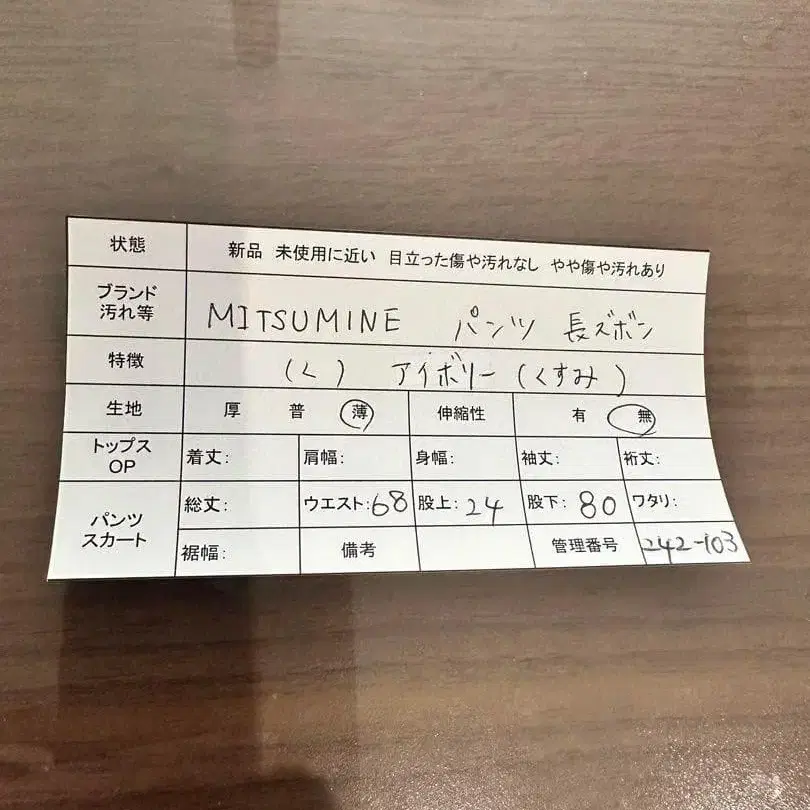 状態 新品 未使用に近い 目立った傷や汚れなし やや傷や汚れあり
ブランド
汚れ等 MITSUMINE パンツ 長ズボン
特徴 (く) アイボリー(くすみ)
生地 厚 普 薄 伸縮性 有 無
トップス
OP 着丈: 肩幅: 身幅: 袖丈: 裄丈:
パンツ
スカート 総丈: ウエスト:68 股上:24 股下:80 ワタリ:
裾幅: 備考 管理番号 242-103